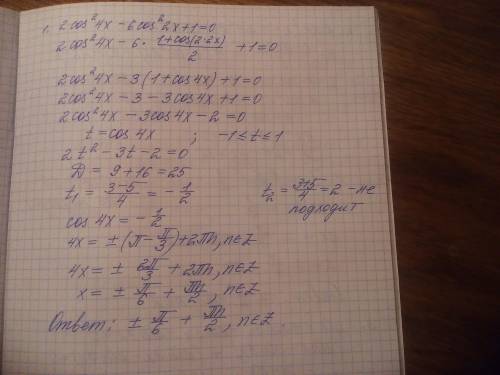 1. 2cos²4x - 6cos²2x + 1 = 0
2cos²4x - 6 · (1+cos(2·2x))/2 + 1 = 0
2cos²4x - 3(1+cos4x) + 1 = 0
2cos²4x - 3 - 3cos4x + 1 = 0
2cos²4x - 3cos4x - 2 = 0
t = cos4x ; -1 ≤ t ≤ 1
2t² - 3t - 2 = 0
D = 9 + 16 = 25
t₁ = (3-5)/4 = -1/2 t₂ = (3+5)/4 = 2 - не
подходит
cos4x = -1/2
4x = ±(π - π/3) + 2πn, n∈Z
4x = ± 2π/3 + 2πn, n∈Z
x = ± π/6 + πn/2, n∈Z
Ответ: ± π/6 + πn/2, n∈Z.